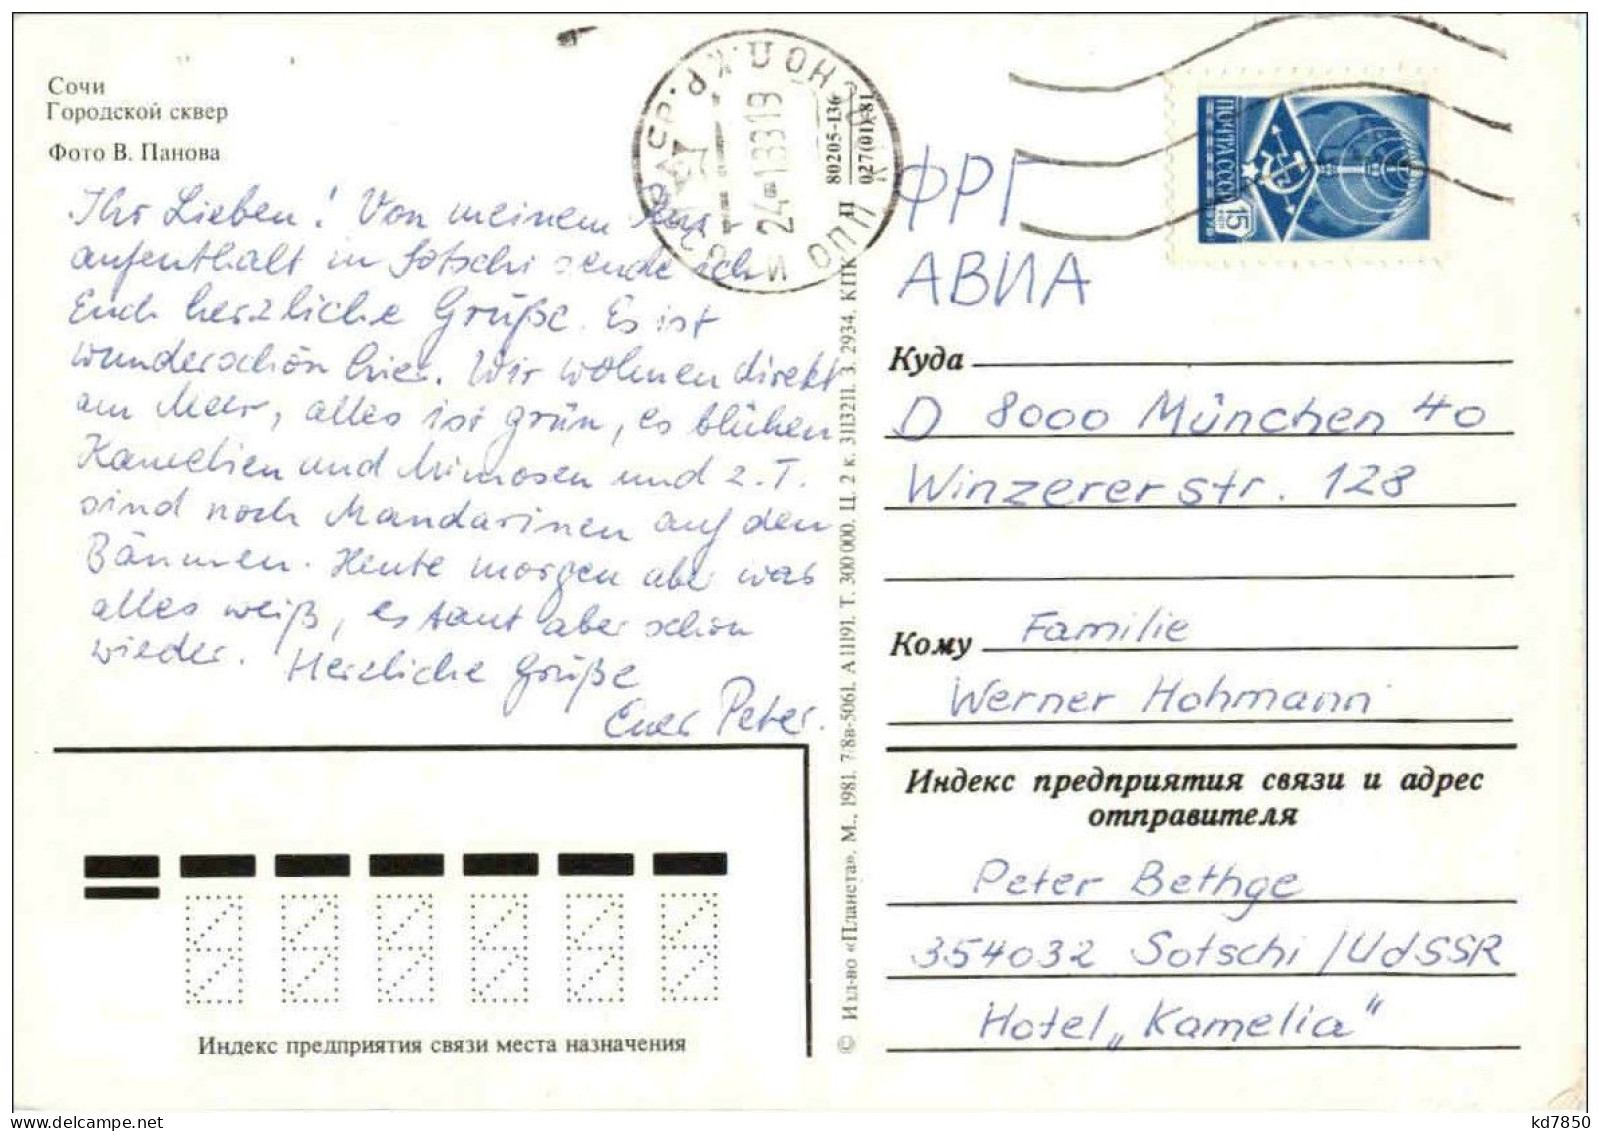 Сочи
Городской сквер
Фото В. Панова
Ihr Lieben! Von meinem
aufenthalt in Sotschi sende ich
Euch herzliche Grüße. Es ist
wunderschön hier. Wir wohnen direkt
am Meer, alles ist grün, es blühen
Kamelien und Mimosen und z.T.
sind noch Mandarinen auf den
Bäumen. Heute morgen aber was
alles weiß, es taut aber schon
wieder. Herzliche Grüße
Euer Peter.
Индекс предприятия связи места назначения
© Изд-во «Планета». М., 1981. 7/8в-5061. А 11191. Т. 300 000. Ц. 2 к. 3113211. З. 2934. КПК
80205-136
027(01)-81
24-183319
ПОЧТА СССР
15
ФРГ
АВИА
Куда
D 8000 München 40
Winzererstr. 128
Кому Familie
Werner Hohmann
Индекс предприятия связи и адрес
отправителя
Peter Bethge
354032 Sotschi /UdSSR
Hotel „Kamelia"
kd7850